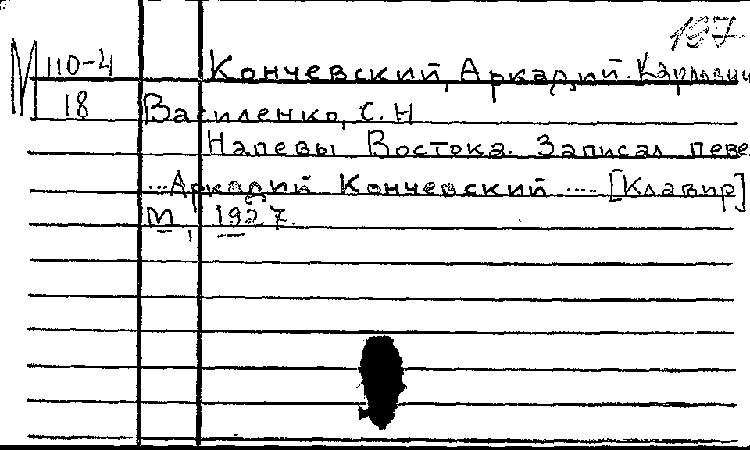 137
М 110-4 Кончевский, Аркадий Карлович
18 Василенко, С. Н
Напевы Востока. Записал певе
...Аркадий Кончевский .... [Клавир]
М, 1927.